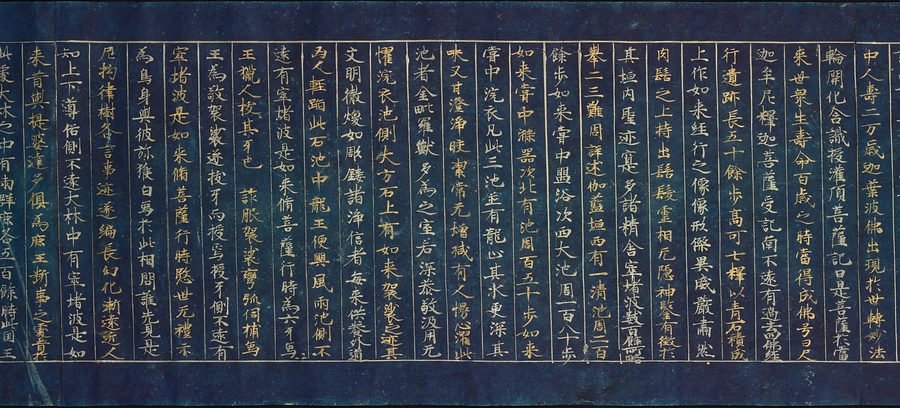 中人壽二万歲迦葉波佛出現於世轉妙法
輪開化含識授灌頂菩薩記曰是菩薩於當
來世衆生壽命百歲之時當得成佛号曰尺
迦牟尼釋迦菩薩受記南不遠有過去四佛經
行遺跡長五十餘步高可七尺以青石積成
上作如來經行之像像形傑異威嚴肅然
肉髻之上特出髻髮靈相无隱神鑒有徵於
其垣內聖迹寔多諸精舍窣堵波數百餘所略
舉二三難周詳述伽藍垣西有一清池周二百
餘步如來甞中盥浴次西大池周一百八十步
如來甞中滌器次北有池周百五十步如來
甞中浣衣凡此三池並有龍止其水更深其
味又甘澄淨皎潔常无增減有人慢心濯此
池者金毗羅獸多為之害若深恭敬汲用无
懼浣衣池側大方石上有如來袈裟之迹其
文明徹煥如彫鏤諸淨信者每來供養外道
凶人輕蹈此石池中龍王便興風雨池側不
遠有窣堵波是如來脩菩薩行時為六牙象
王獵人拔其牙也 詐服袈裟彎弧伺捕象
王為敬袈裟遂拔牙而授焉授牙側不遠有
窣堵波是如來脩菩薩行時愍世无禮示
為鳥身與彼弥猴白象於此相問誰先見是
尼拘律樹各言事迹遂編長幼化漸遠近人
知上下導俗側不遠大林中有窣堵波是如
來昔與提婆達多俱為鹿王斷事之處昔
此處大林之中有兩群鹿各五百餘時此國王